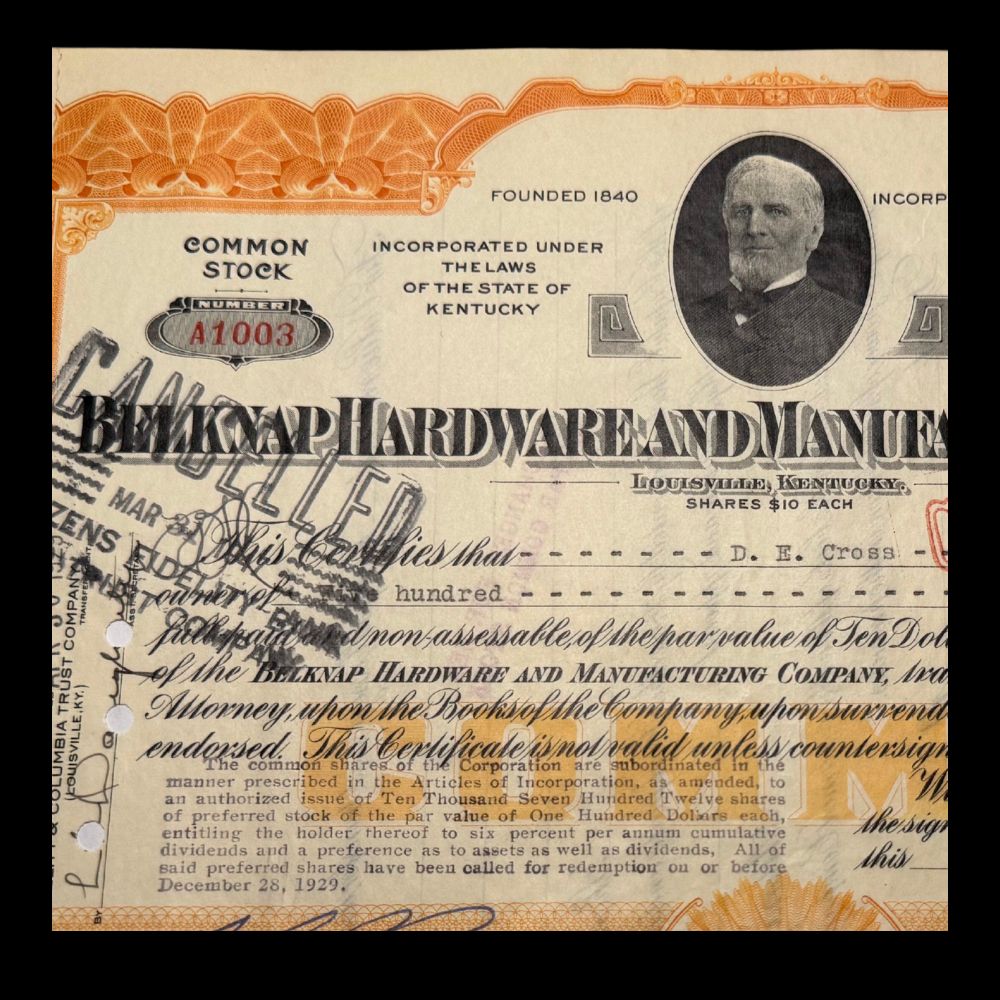 FOUNDED 1840
INCORP
COMMON
STOCK
NUMBER
A1003
INCORPORATED UNDER
THE LAWS
OF THE STATE OF
KENTUCKY
CANCELLED
MAR 31
BELKNAP HARDWARE AND MANUFA
LOUISVILLE, KENTUCKY.
SHARES $10 EACH
This Certifies that - - - - - - - - D. E. Cross - -
owner of - Five hundred - - - - - - - - - - - - - - -
full-paid and non-assessable, of the par value of Ten Dol
of the BELKNAP HARDWARE AND MANUFACTURING COMPANY, tra
Attorney, upon the Books of the Company, upon surrend
endorsed. This Certificate is not valid unless countersign
COMM
The common shares of the Corporation are subordinated in the
manner prescribed in the Articles of Incorporation, as amended, to
an authorized issue of Ten Thousand Seven Hundred Twelve shares
of preferred stock of the par value of One Hundred Dollars each,
entitling the holder thereof to six percent per annum cumulative
dividends and a preference as to assets as well as dividends. All of
said preferred shares have been called for redemption on or before
December 28, 1929.
Wi
the sign
this
ZENS FIDELITY BANK
TRUST COMPANY
& COLUMBIA TRUST COMPANY
(LOUISVILLE, KY.)
TRANSFER AGENT
BY